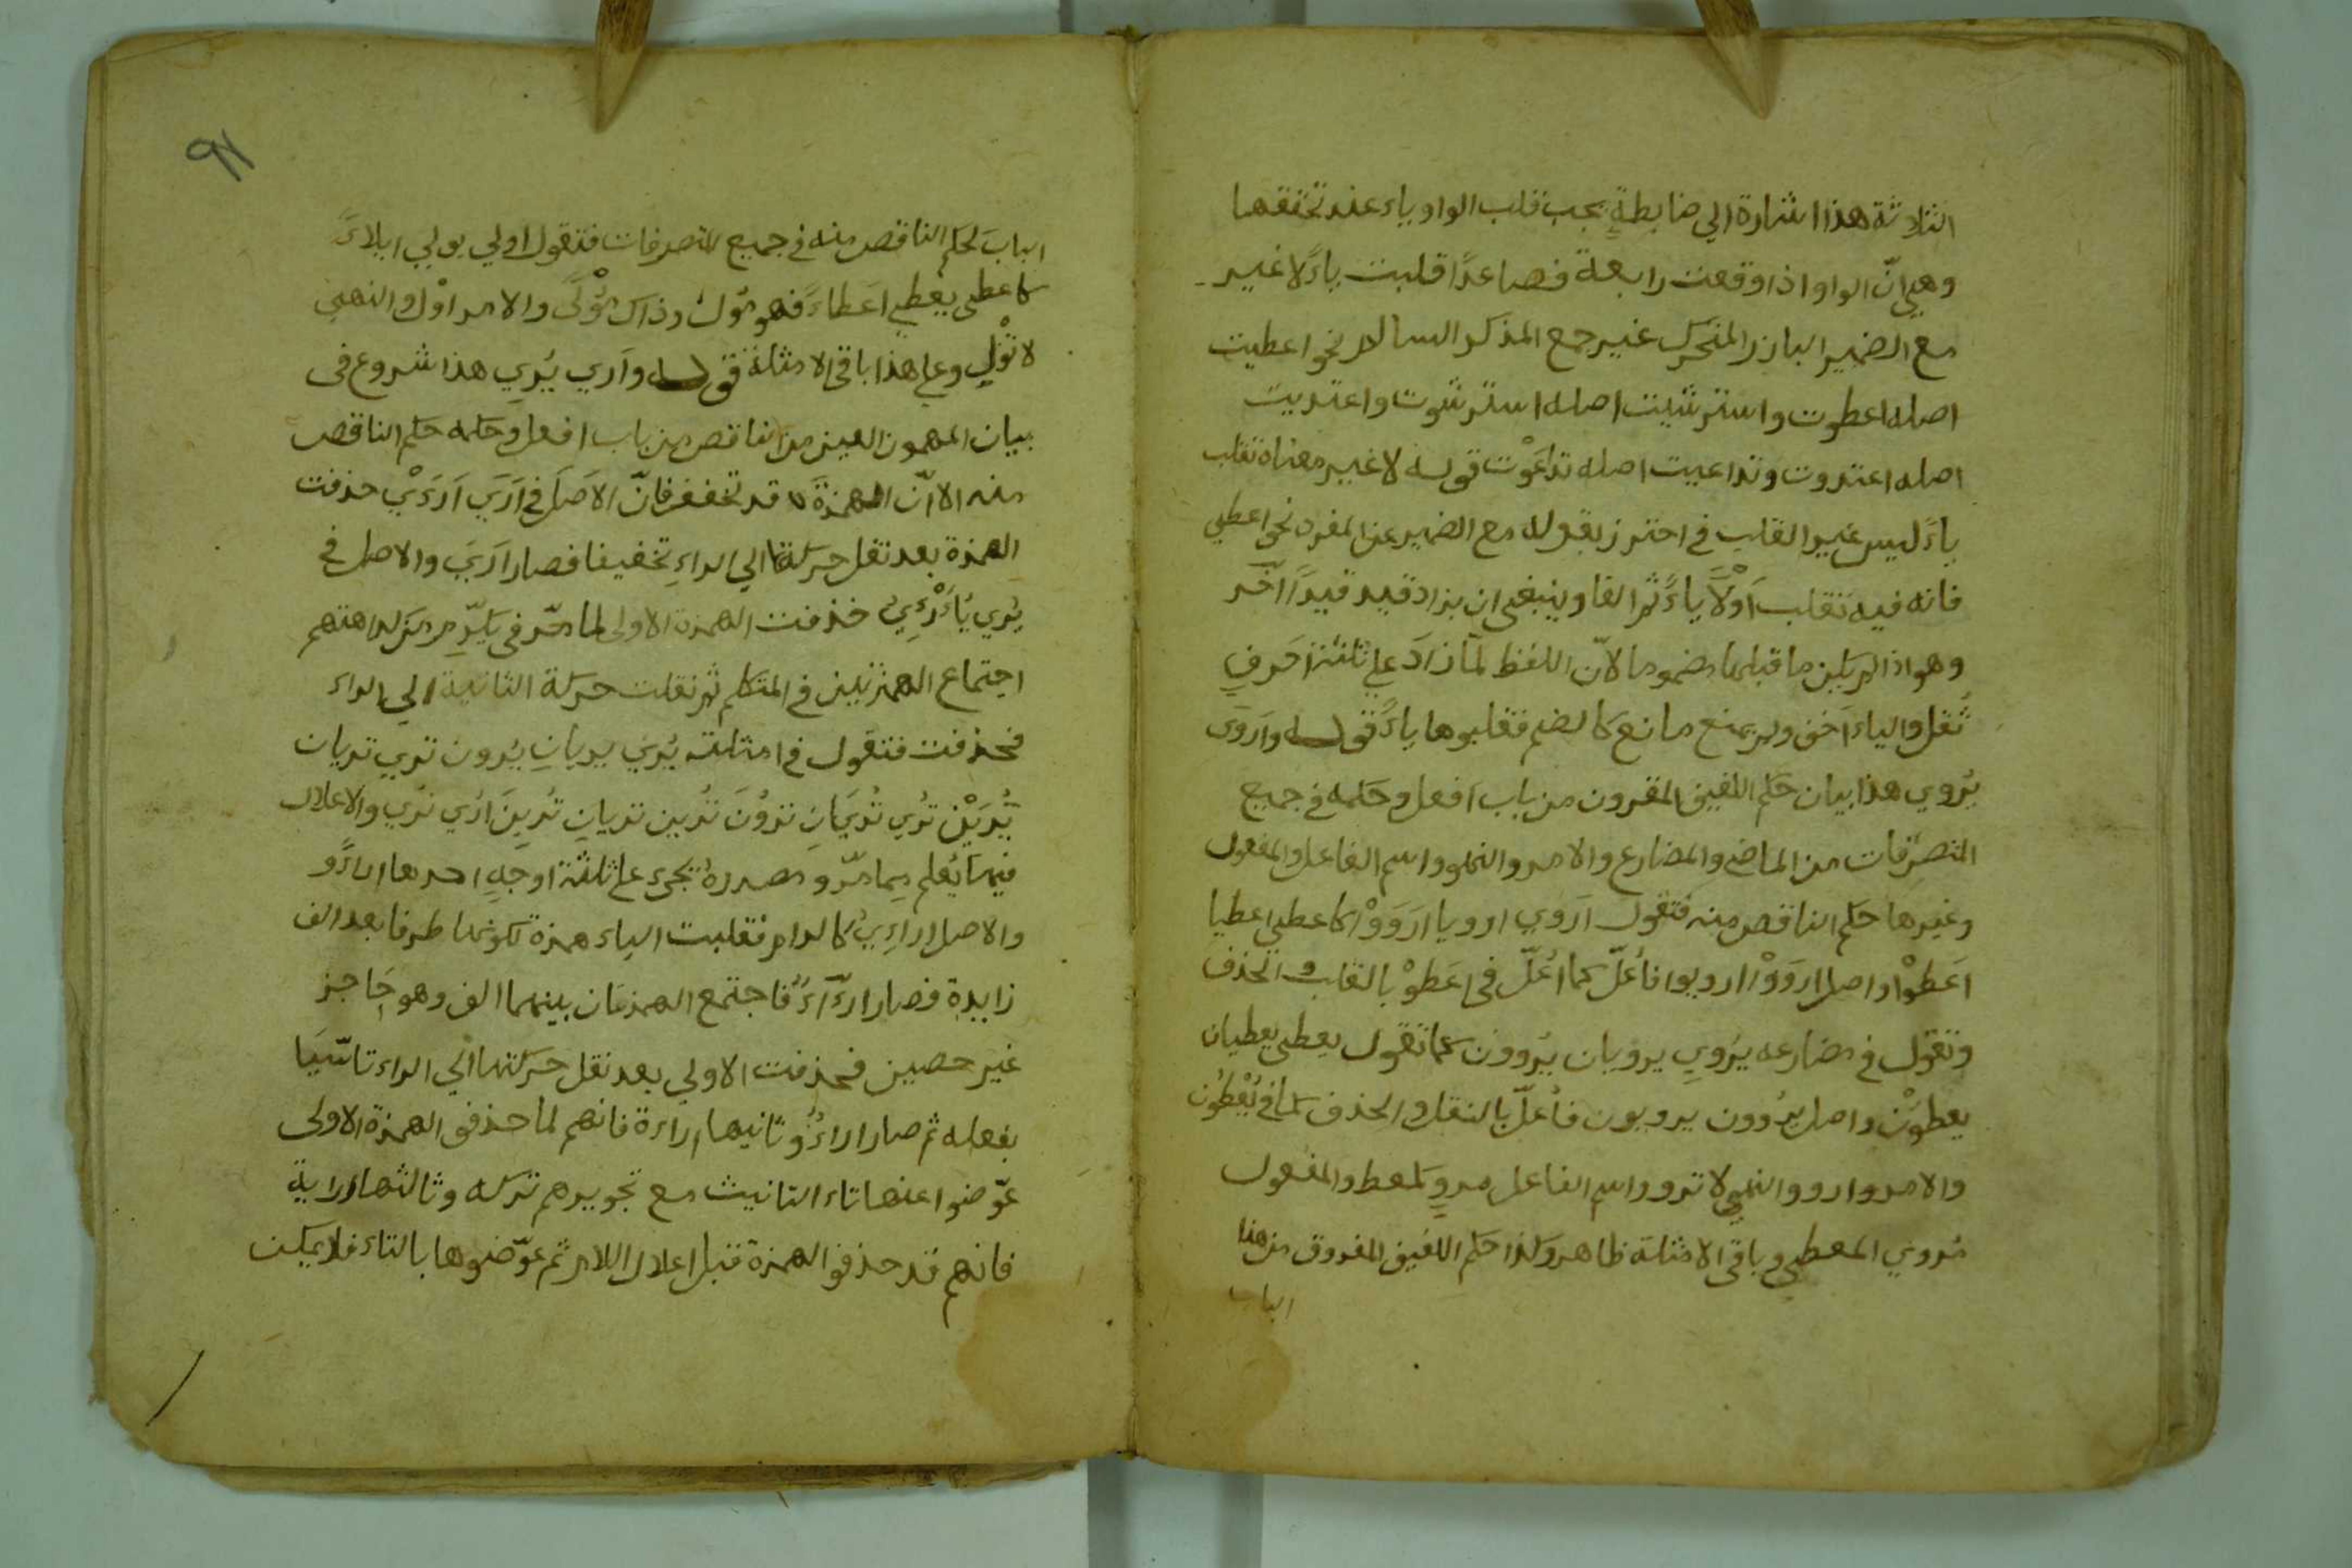 الثلاثة هذا اشارة الي ضابطةٍ يجب قلب الواو ياء عند تحققها
وهي انّ الواو اذا وقعت رابعة فصاعدًا قلبت ياءً لا غير
مع الضمير البارز المتحرك غير جمع المذكر السالم نحو اعطيت
اصله اعطوت واسترشيت اصله استرشوت واعتديت
اصله اعتدوت وتداعيت اصله تداعَوْت قوله لا غير معناه تقلب
ياءً ليس غير القلب في احترز بقوله مع الضمير عن المفرد نحو اعطي
فانه فيه تقلب اَوْلًا ياءً ثم الفا وينبغي ان يزاد قيد قيدًا آخر
وهو اذا لم يكن ما قبلها مضموما لانّ اللفظ لمّا زادَ علي ثلثة احرفٍ
ثقل والياء اَخف ولم يمنع مانع كالضم فقلبوها ياءً قوله واَروَى
يُروي هذا بيان حكم اللفيف المقرون من باب اَفعل وحكمه في جميع
المتصرّفات من الماضي والمضارع والامر والنهي واسم الفاعل والمفعول
وغيرها حكم الناقص منه فتقول اَروي ارويا اروَوْا كاعطي اعطيا
اَعطوْا واصل اروَوْا ارويوا فاُعلّ كما اُعلّ في اعَطوْ بالقلب والحذف
وتقول في مضارعه يُروِي يرويان يُروون كما تقول يعطي يعطيان
يعطوْن واصل يُروون يرويون فاُعلّ بالنقل والحذف كما في يُعْطُون
والامر وارو والنهي لا ترو واسم الفاعل مروٍ كمعط والمفعول
مُروي المعطي وباقي الامثلة ظاهر وكذا حكم اللفيف المفروق من هذا
الباب
٩١
الباب لحكم الناقص منه في جميع المتصرفات فتقول اولي يولي ايلاءً
كاعطى يعطي اعَطاءً فهو مُول وذاك مُوْلًى والامر اوْل والنهي
لا تُوْلِ وعلي هذا باقي الامثلة قوله واَري يُرِي هذا شروع في
بيان المهموز العين من الناقص من باب افعل وحكمه حكم الناقص
منه الا انّ الهمزةَ قد تخفف فانّ الاَصل في اَرَي اَرءَيْ حذفت
الهمزة بعد نقل حركتها الي الراءِ تخفيفا فصار اَرَيَ والاصل في
يُرِي يُاَرْءِيُ حذفت الهمزة الاولى لما مرّ في يكرّم من كراهتهم
اجتماع الهمزتين في المتكلم ثم نقلت حركة الثانية الي الراء
فحذفت فتقول في امثلته يُرِي يريانِ يُرون تري تريان
يُرَيْن تُرِي تُريَانِ تروُنَ تُرين تريانِ تُرِينَ اُرِي نُرِي والاعلال
فيها يُعلم مِما مرّ ومصدرهُ يجيء علي ثلثة اوجهٍ احدها اراءً و
والاصل اراءِيُ كالرام فقلبت الياء همزة لكونها طرفا بعد الف
زايدة فصار ارآءُ فاجتمع الهمزتان بينهما الف وهو حَاجز
غير حصين فحذفت الاولي بعد نقل حركتها الي الراء تاسّيَا
بفعله ثم صار اراءُ وثانيها اراءة فانهم لما حذفو الهمزة الاولى
عوّضوا عنها تاء التانيث مع تجويرهم تركه وثالثها اراية
فانهم قد حذفو الهمزة قبل اعلال اللام ثم عوّضوها بالتاء فلا يمكن